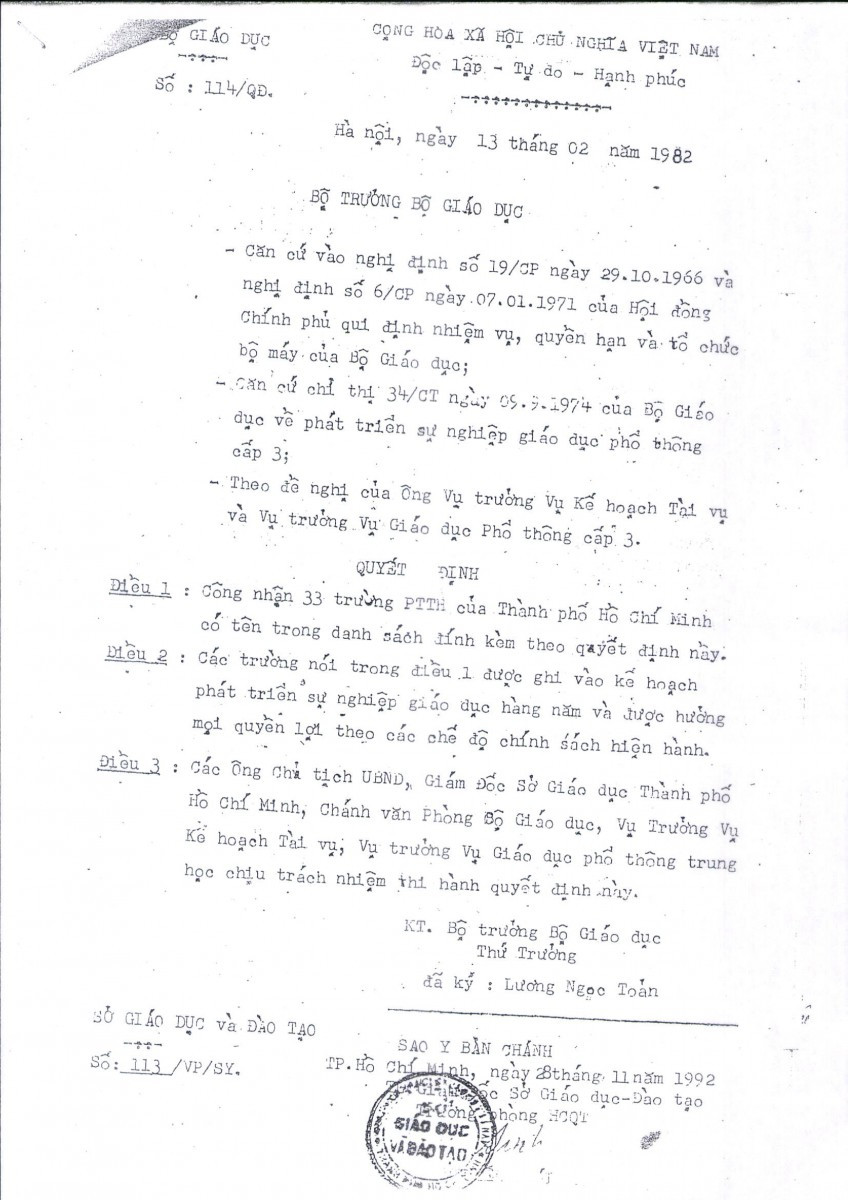 BỘ GIÁO DỤC
Số : 114/QĐ.
CỘNG HÒA XÃ HỘI CHỦ NGHĨA VIỆT NAM
Độc lập - Tự do - Hạnh phúc
Hà nội, ngày 13 tháng 02 năm 1982
BỘ TRƯỞNG BỘ GIÁO DỤC
- Căn cứ vào nghị định số 19/CP ngày 29.10.1966 và
nghị định số 6/CP ngày 07.01.1971 của Hội đồng
Chính phủ qui định nhiệm vụ, quyền hạn và tổ chức
bộ máy của Bộ Giáo dục;
- Căn cứ chỉ thị 34/CT ngày 09.9.1974 của Bộ Giáo
dục về phát triển sự nghiệp giáo dục phổ thông
cấp 3;
- Theo đề nghị của Ông Vụ trưởng Vụ Kế hoạch Tài vụ
và Vụ trưởng Vụ Giáo dục Phổ thông cấp 3.
QUYẾT ĐỊNH
Điều 1 : Công nhận 33 trường PTTH của Thành phố Hồ Chí Minh
có tên trong danh sách đính kèm theo quyết định nầy.
Điều 2 : Các trường nói trong điều 1 được ghi vào kế hoạch
phát triển sự nghiệp giáo dục hàng năm và được hưởng
mọi quyền lợi theo các chế độ chính sách hiện hành.
Điều 3 : Các Ông Chủ tịch UBND, Giám Đốc Sở Giáo dục Thành phố
Hồ Chí Minh, Chánh văn Phòng Bộ Giáo dục, Vụ Trưởng Vụ
Kế hoạch Tài vụ, Vụ trưởng Vụ Giáo dục phổ thông trung
học chịu trách nhiệm thi hành quyết định này.
KT. Bộ trưởng Bộ Giáo dục
Thứ Trưởng
đã ký : Lương Ngọc Toản
SỞ GIÁO DỤC và ĐÀO TẠO
Số: 113 /VP/SY.
SAO Y BẢN CHÁNH
TP.Hồ Chí Minh, ngày 28 tháng 11 năm 1992
Giám đốc Sở Giáo dục-Đào tạo
Trưởng phòng HCQT
GIÁO DỤC
VÀ ĐÀO TẠO